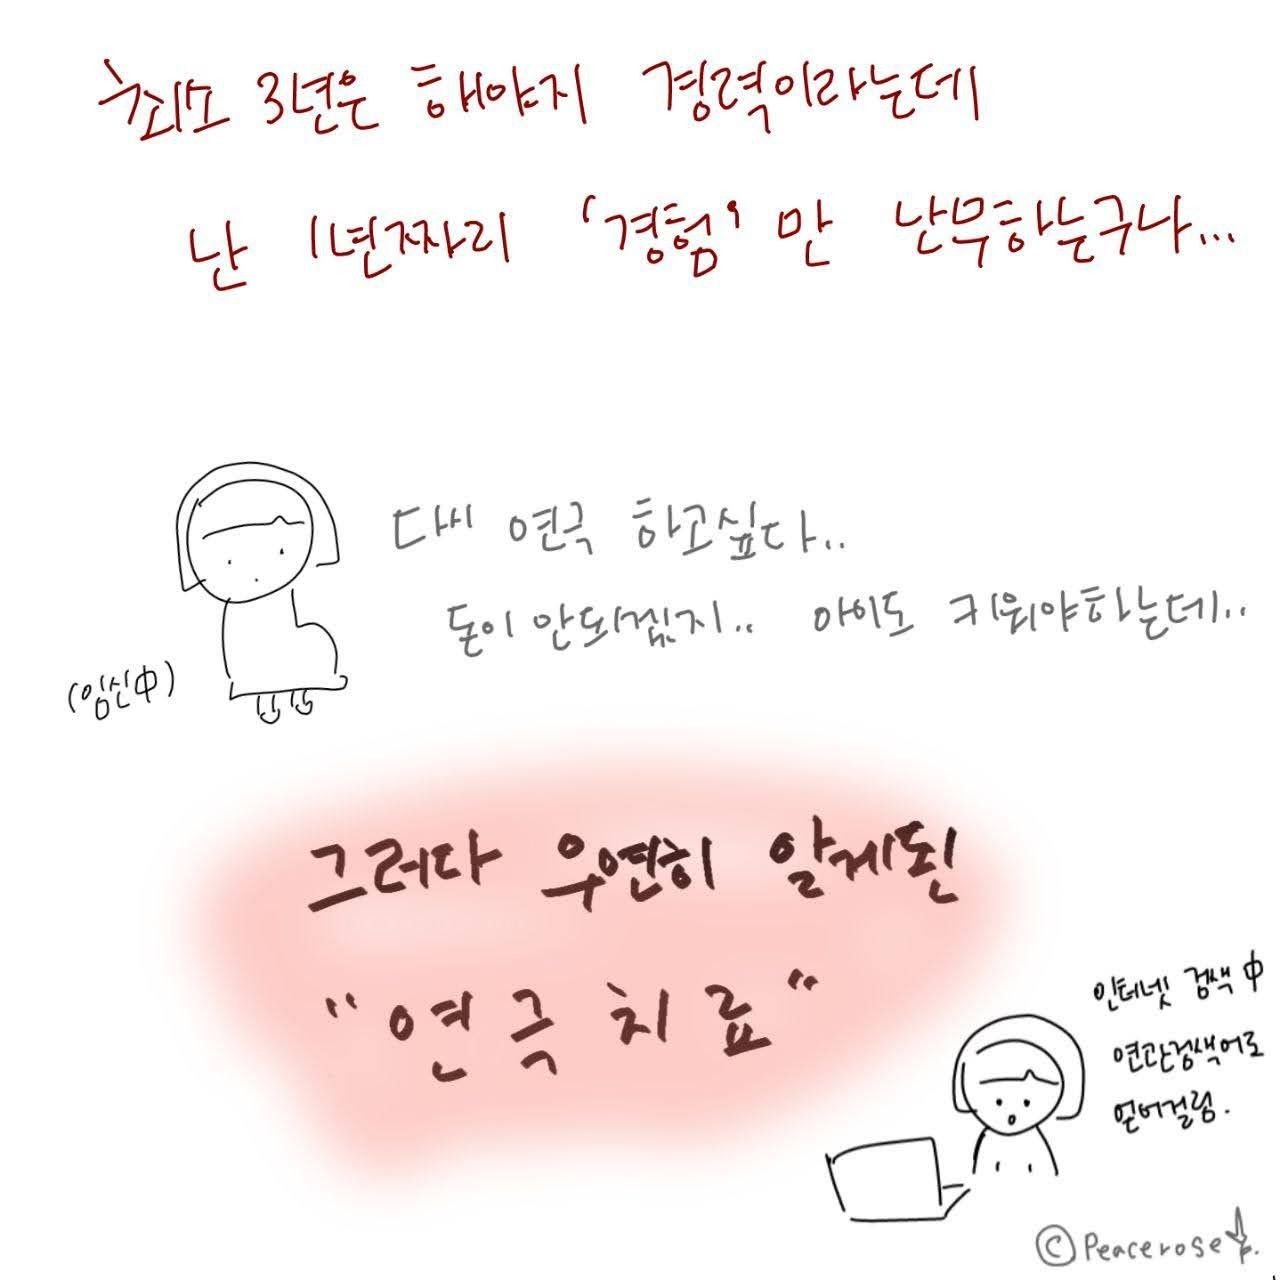 최소 3년은 해야지 경력이라는데
난 1년짜리 '경험'만 난무하는구나...
다시 연극 하고싶다..
돈이 안되겠지.. 아이도 키워야하는데..
(임신中)
그러다 우연히 알게된
"연극치료"
인터넷 검색 中
연관검색어로
얻어걸림.
© Peacerose